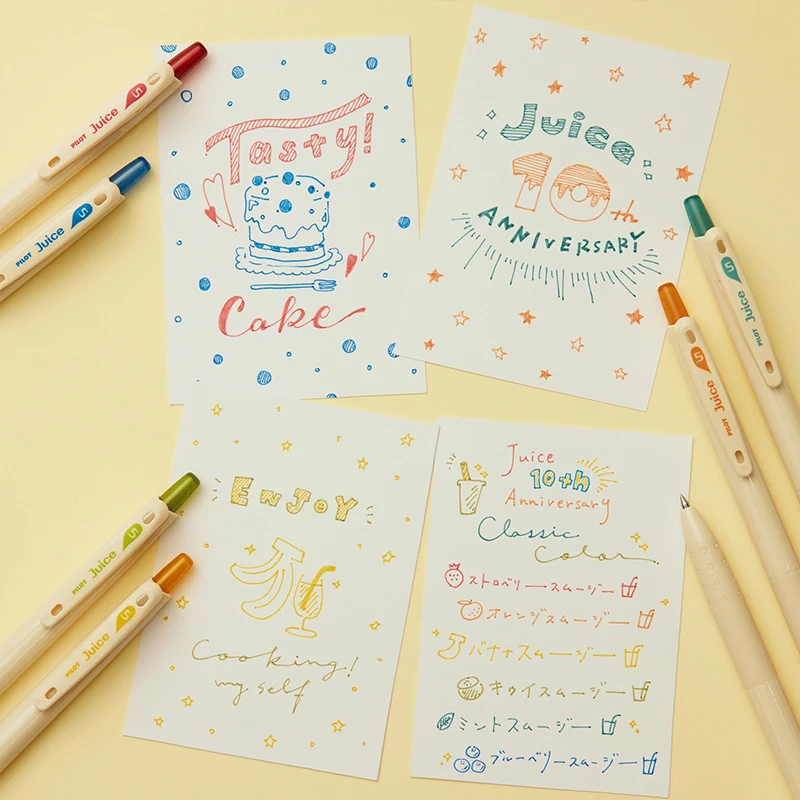 PILOT Juice 5
PILOT Juice 5
Tasty!
Cake
Juice
10th
ANNIVERSARY
PILOT Juice 5
PILOT Juice 5
ENJOY
Cooking!
my self
PILOT Juice 5
PILOT Juice 5
Juice
10th
Anniversary
Classic
Color
ストロベリースムージー
オレンジスムージー
バナナスムージー
キウイスムージー
ミントスムージー
ブルーベリースムージー